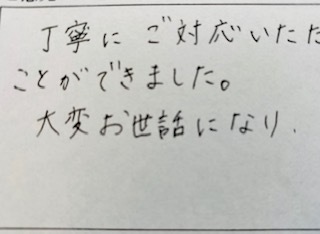 丁寧にご対応いただ
ことができました。
大変お世話になり、